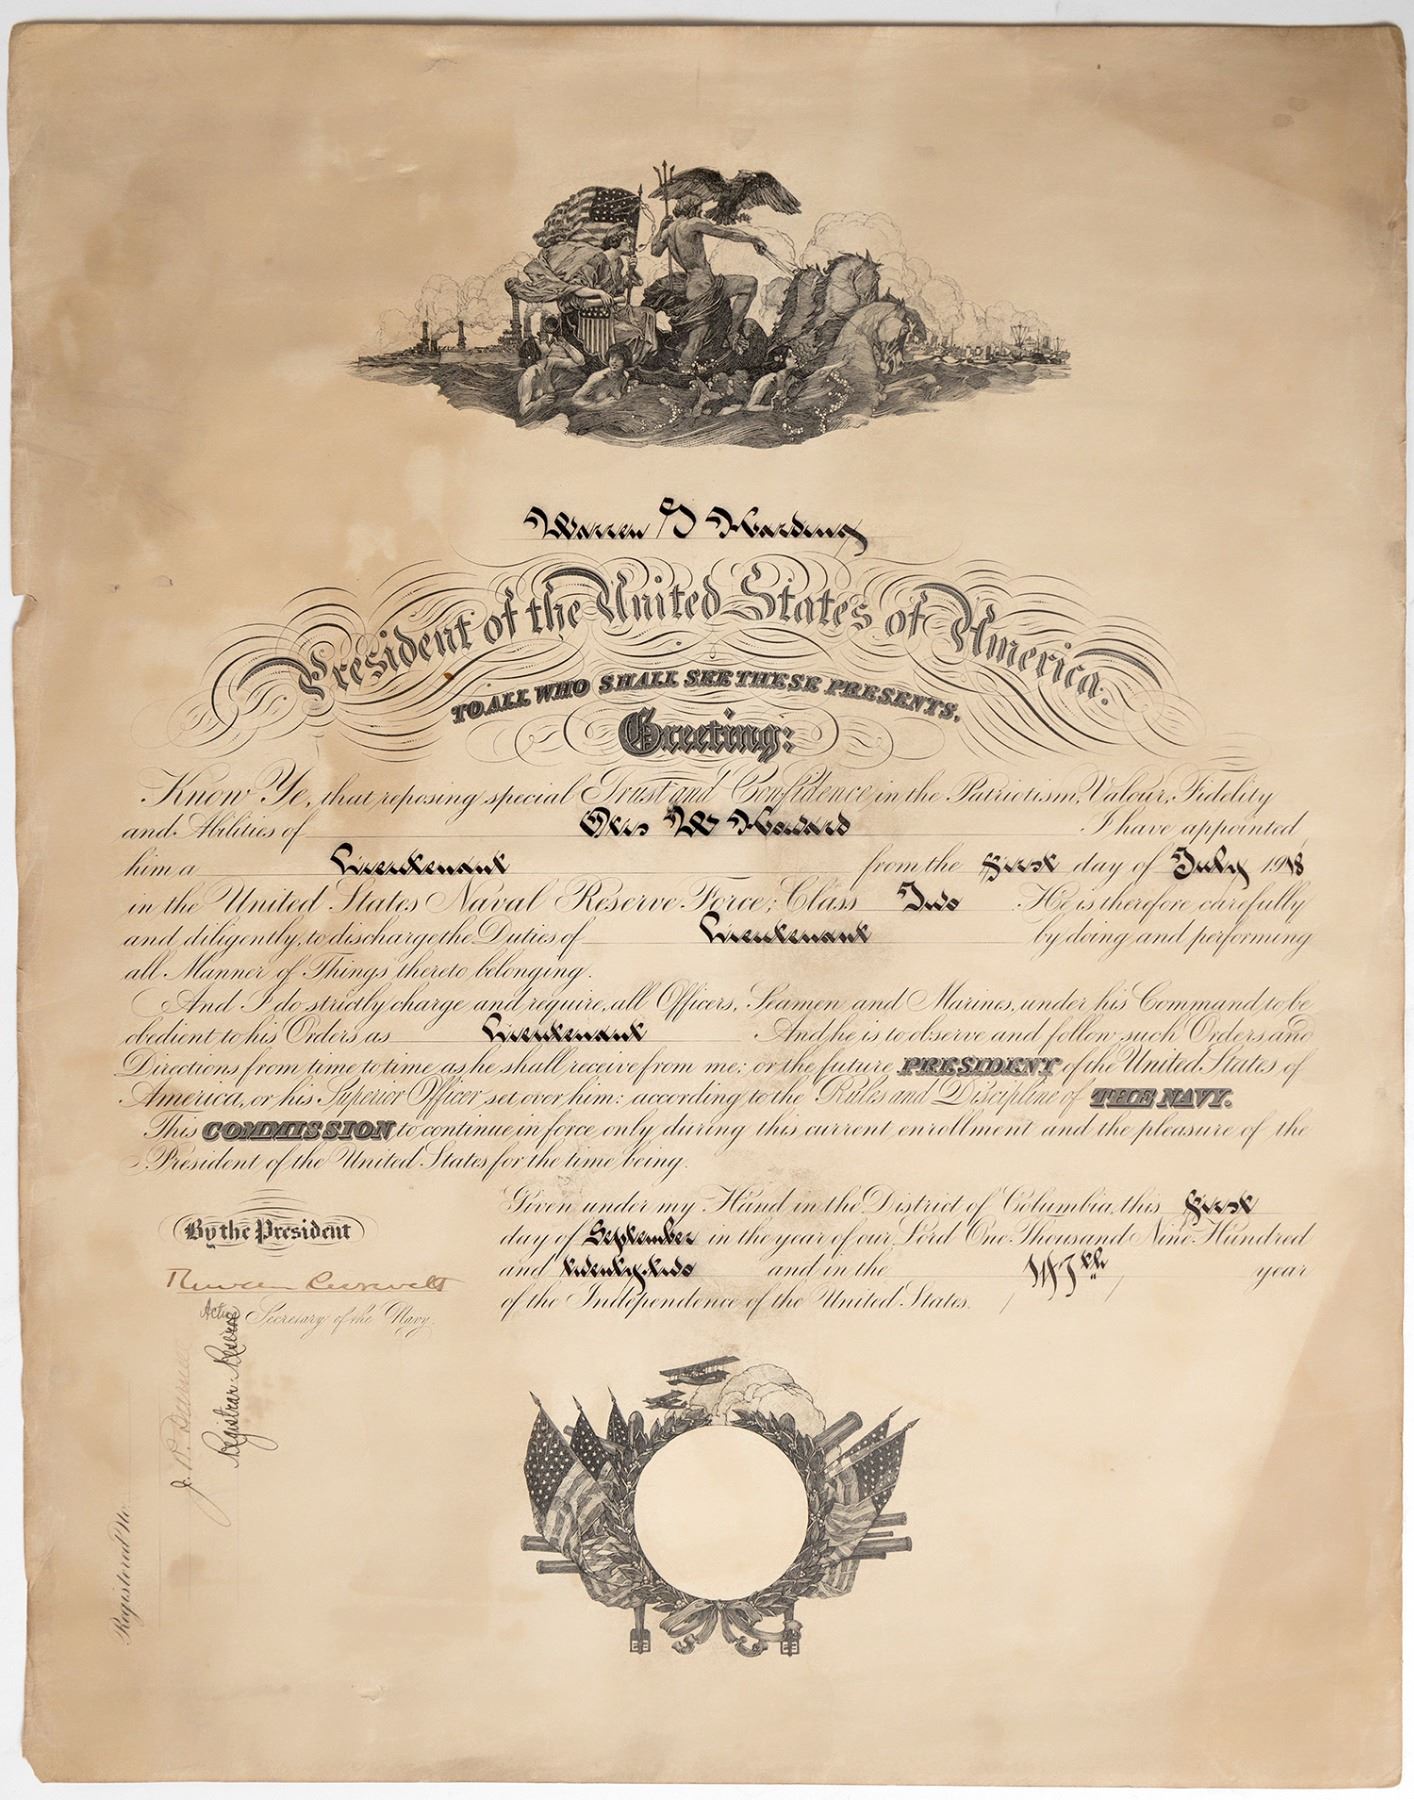 Warren G Harding
President of the United States of America.
TO ALL WHO SHALL SEE THESE PRESENTS,
Greeting:
Know Ye, that reposing special Trust and Confidence in the Patriotism, Valour, Fidelity
and Abilities of Otis W Howard I have appointed
him a Lieutenant from the first day of July 1918
in the United States Naval Reserve Force; Class Two He is therefore carefully
and diligently, to discharge the Duties of Lieutenant by doing and performing
all Manner of Things thereto belonging.
And I do strictly charge and require, all Officers, Seamen and Marines, under his Command to be
obedient to his Orders as Lieutenant And he is to observe and follow such Orders and
Directions from time to time as he shall receive from me; or the future PRESIDENT of the United States of
America, or his Superior Officer set over him: according to the Rules and Discipline of THE NAVY.
This COMMISSION to continue in force only during this current enrollment and the pleasure of the
President of the United States for the time being.
Given under my Hand in the District of Columbia, this first
day of September in the year of our Lord One Thousand Nine Hundred
and twenty-two and in the 147th year
of the Independence of the United States.
By the President
Theodore Roosevelt
Acting Secretary of the Navy.
J. P.
Registrar Reserve
Registered No.